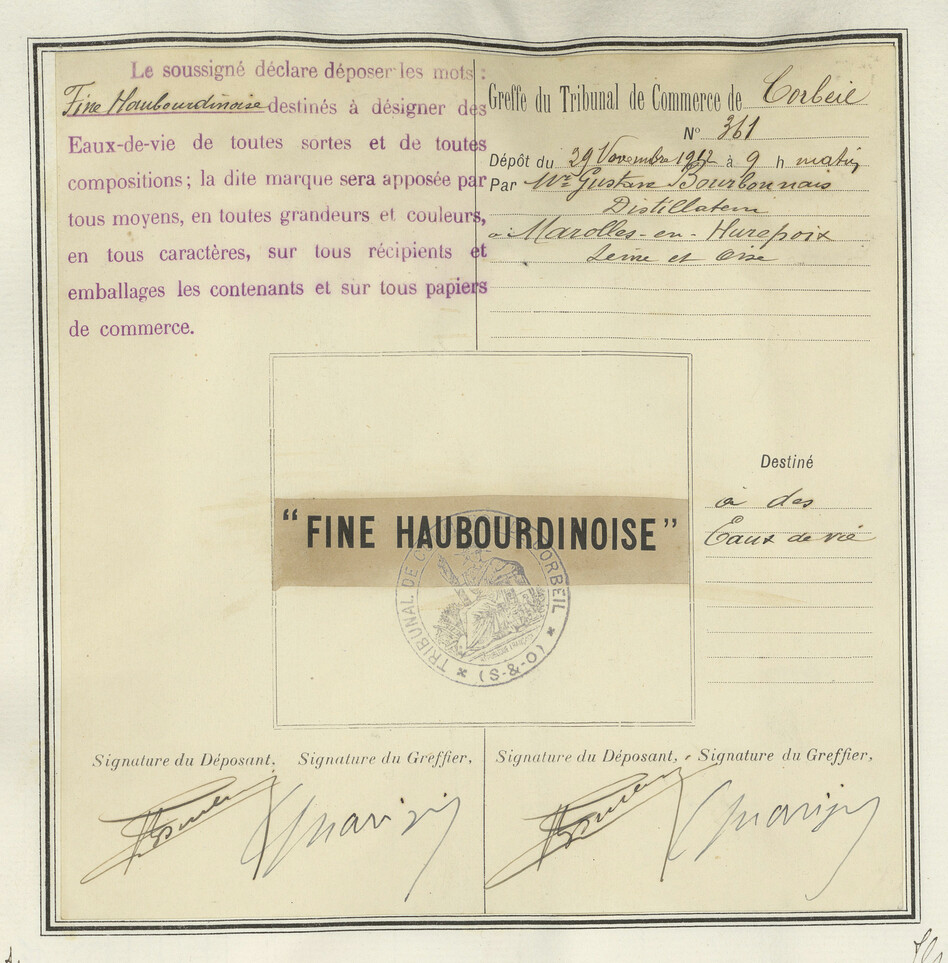 Le soussigné déclare déposer les mots :
Fine Haubourdinoise destinés à désigner des
Eaux-de-vie de toutes sortes et de toutes
compositions; la dite marque sera apposée par
tous moyens, en toutes grandeurs et couleurs,
en tous caractères, sur tous récipients et
emballages les contenants et sur tous papiers
de commerce.
Greffe du Tribunal de Commerce de Corbeil
N° 361
Dépôt du 29 Novembre 1912 à 9 h matin
Par Mr Gustave Bourbonnais
Distillateur
à Marolles-en-Hurepoix
Seine et Oise
"FINE HAUBOURDINOISE"
TRIBUNAL DE CORBEIL
(S-&-O)
Destiné
à des
Eaux de vie
Signature du Déposant, Signature du Greffier,
Signature du Déposant, Signature du Greffier,